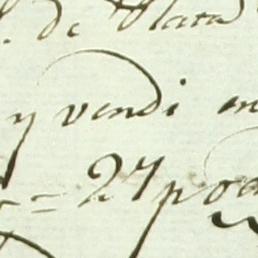 de Plata
y vendi en
= 27 po